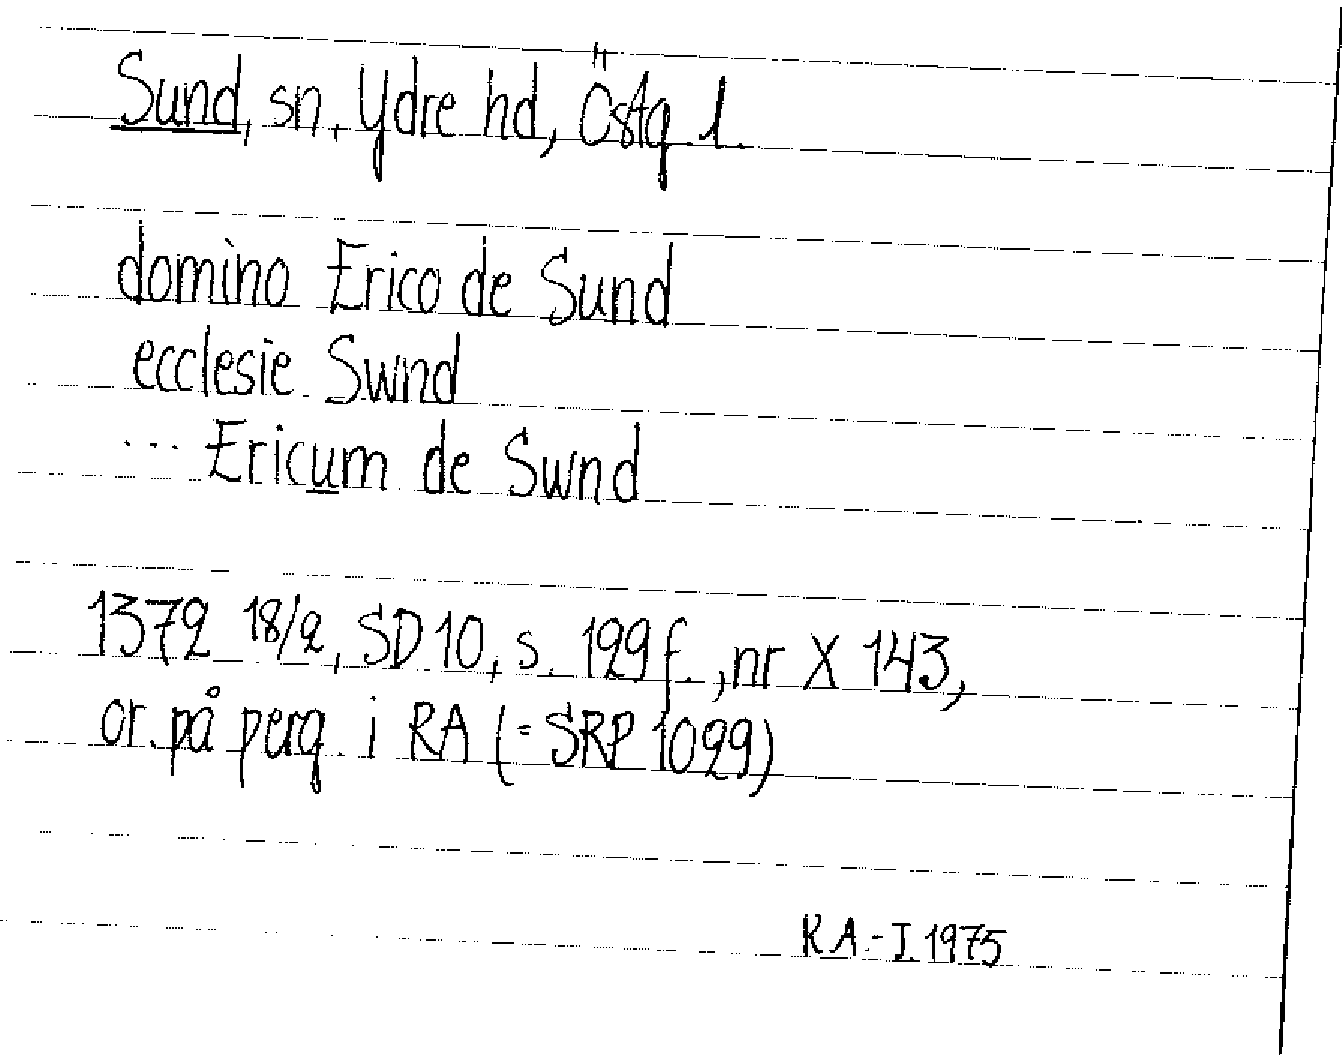 Sund, sn, Ydre hd, Östg l.
domino Erico de Sund
ecclesie Swnd
... Ericum de Swnd
1372 18/2, SD 10, s. 129 f., nr X 143,
or. på perg. i RA (= SRP 1099)
K.A.-I. 1975